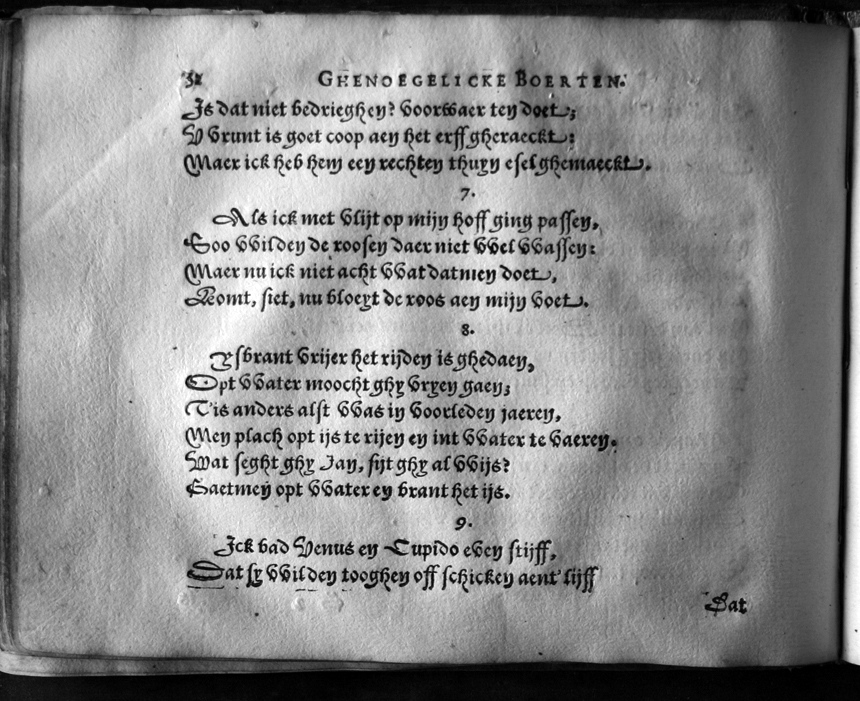 32 GHENOEGELICKE BOERTEN.
Is dat niet bedrieghen? voorwaer ten doet;
V vrunt is goet coop aen het erff gheraeckt:
Maer ick heb hem een rechten thuyn esel ghemaeckt.
7.
Als ick met vlijt op mijn hoff ging passen,
Soo wilden de roosen daer niet wel wassen:
Maer nu ick niet acht wat datmen doet,
Komt, siet, nu bloeyt de roos aen mijn voet.
8.
Ysbrant vrijer het rijden is ghedaen,
Opt water moocht ghy vryen gaen;
T'is anders alst was in voorleden jaeren,
Men plach opt ijs te rijen en int water te vaeren.
Wat seght ghy Jan, sijt ghy al wijs?
Gaetmen opt water en brant het ijs.
9.
Ick bad Venus en Cupido even stijff,
Dat sy wilden tooghen off schicken aent lijff
Dat